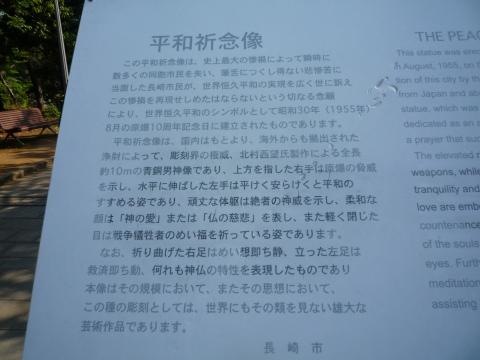 平和祈念像
この平和祈念像は、史上最大の惨禍によって瞬時に
数多くの同胞市民を失い、筆舌につくし得ない悲惨苦に
当面した長崎市民が、世界恒久平和の実現を広く世に訴え
この惨禍を再現せしめてはならないという切なる念願
により、世界恒久平和のシンボルとして昭和30年（1955年）
8月の原爆10周年記念日に建立されたものであります。
平和祈念像は、国内はもとより、海外からも拠出された
浄財によって、彫刻界の権威、北村西望氏製作による全長
約10mの青銅男神像であり、上方を指した右手は原爆の脅威
を示し、水平に伸ばした左手は平けく安らけくと平和の
すすめる姿であり、頑丈な体躯は絶者の神威を示し、柔和な
顔は「神の愛」または「仏の慈悲」を表し、また軽く閉じた
目は戦争犠牲者のめい福を祈っている姿であります。
なお、折り曲げた右足はめい想即ち静、立った左足は
救済即ち動、何れも神仏の特性を表現したものであり
本像はその規模において、またその思想において、
この種の彫刻としては、世界にもその類を見ない雄大な
芸術作品であります。
長崎市
THE PEAC
This statue was erec
August, 1955, on th
tion of this city by th
from Japan and abo
statue, which was
dedicated as an a
a prayer that su
The elevated r
weapons, while
tranquility and
love are embo
countenance
of the souls
eyes. Furth
meditation
assisting